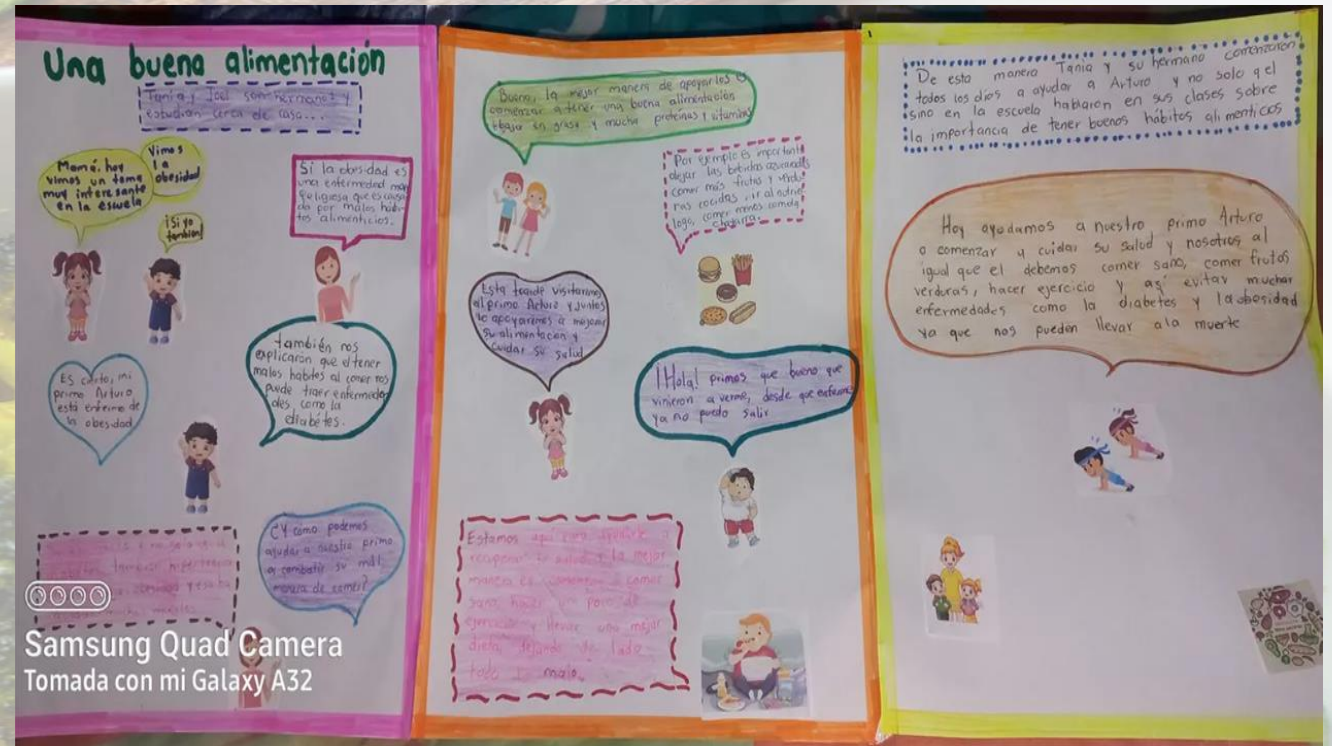 Una buena alimentación
Tania y Joel son hermanos y
estudian cerca de casa...
Mamá, hoy
vimos un tema
muy interesante
en la escuela
Vimos
la
obesidad
¡Si yo
tambien!
Sí la obesidad es
una enfermedad muy
peligrosa que es causa
do por malos habi
tos alimenticios.
también nos
explicaron que el tener
malos habitos al comer nos
puede traer enfermeda
des como la
diabétes.
Es cierto, mi
primo Arturo
está enfermo de
la obesidad
¿Y cómo podemos
ayudar a nuestro primo
a combatir su mala
manera de comer?
Samsung Quad Camera
Tomada con mi Galaxy A32
Bueno, la mejor manera de apoyarlos es
comenzar a tener una buena alimentación
baja en grasa y mucha proteinas y vitaminas
Por ejemplo es importante
dejar las bebidas azucaradas
comer más frutas y verdu
ras cocidas, ir al nutrió
logo, comer menos comida
chatarra.
Esta tarde visitaremos
al primo Arturo y juntos
lo apoyaremos a mejorar
su alimentacion y
cuidar su salud
¡Hola! primos que bueno que
vinieron a verme, desde que enferme
ya no puedo salir
Estamos aquí para ayudarte a
recuperar tu salud y la mejor
manera es comenzar a comer
sano, hacer un poco de
ejercicio y llevar una mejor
dieta, dejando de lado
todo lo malo.
De esta manera Tania y su hermano comenzaron
todos los días a ayudar a Arturo y no solo a el
sino en la escuela hablaron en sus clases sobre
la importancia de tener buenos hábitos alimenticios
Hoy ayudamos a nuestro primo Arturo
a comenzar a cuidar su salud y nosotros al
igual que el debemos comer sano, comer frutas
verduras, hacer ejercicio y así evitar muchas
enfermedades como la diabetes y la obesidad
ya que nos pueden llevar ala muerte